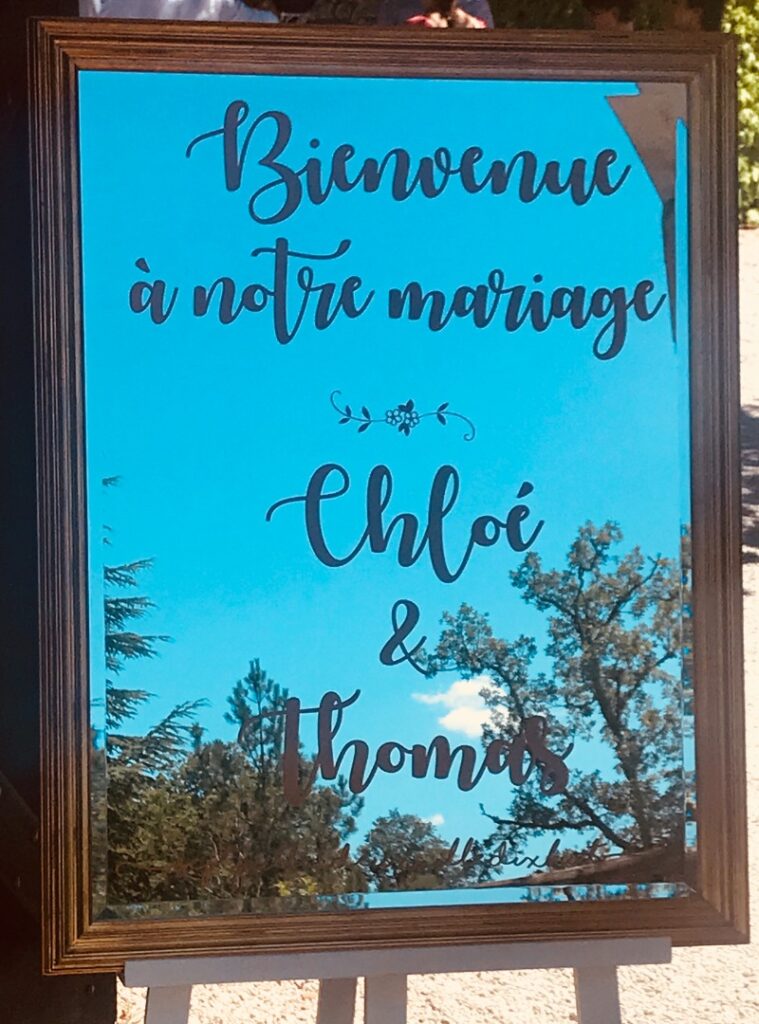 Bienvenue
à notre mariage
Chloé
&
Thomas
dixhuit